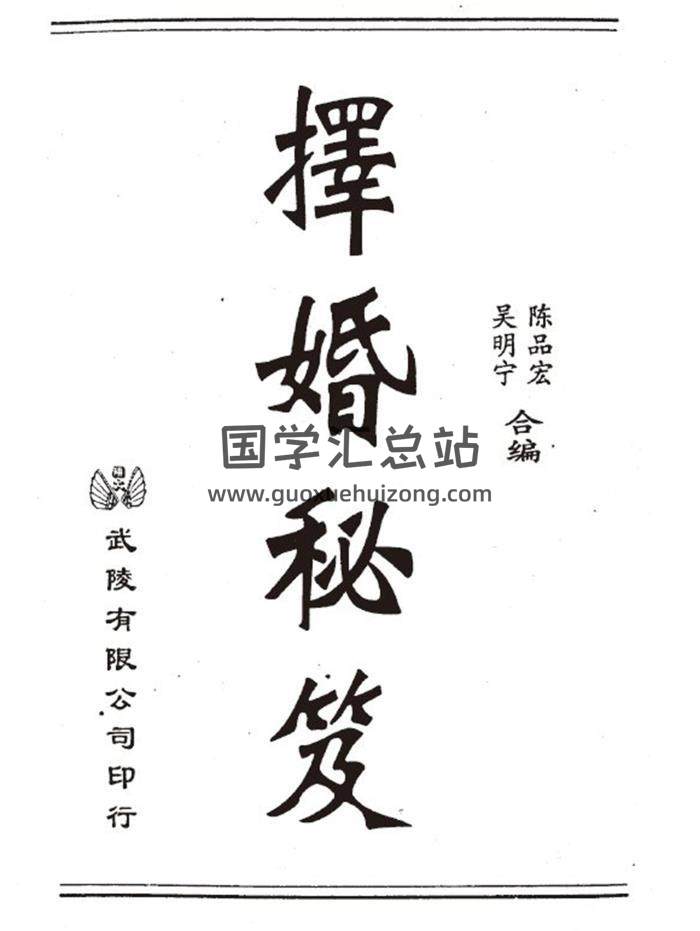 陈品宏
吴明宁
合编
擇婚秘笈
武陵有限公司印行
国学汇总站
www.guoxuehuizong.com